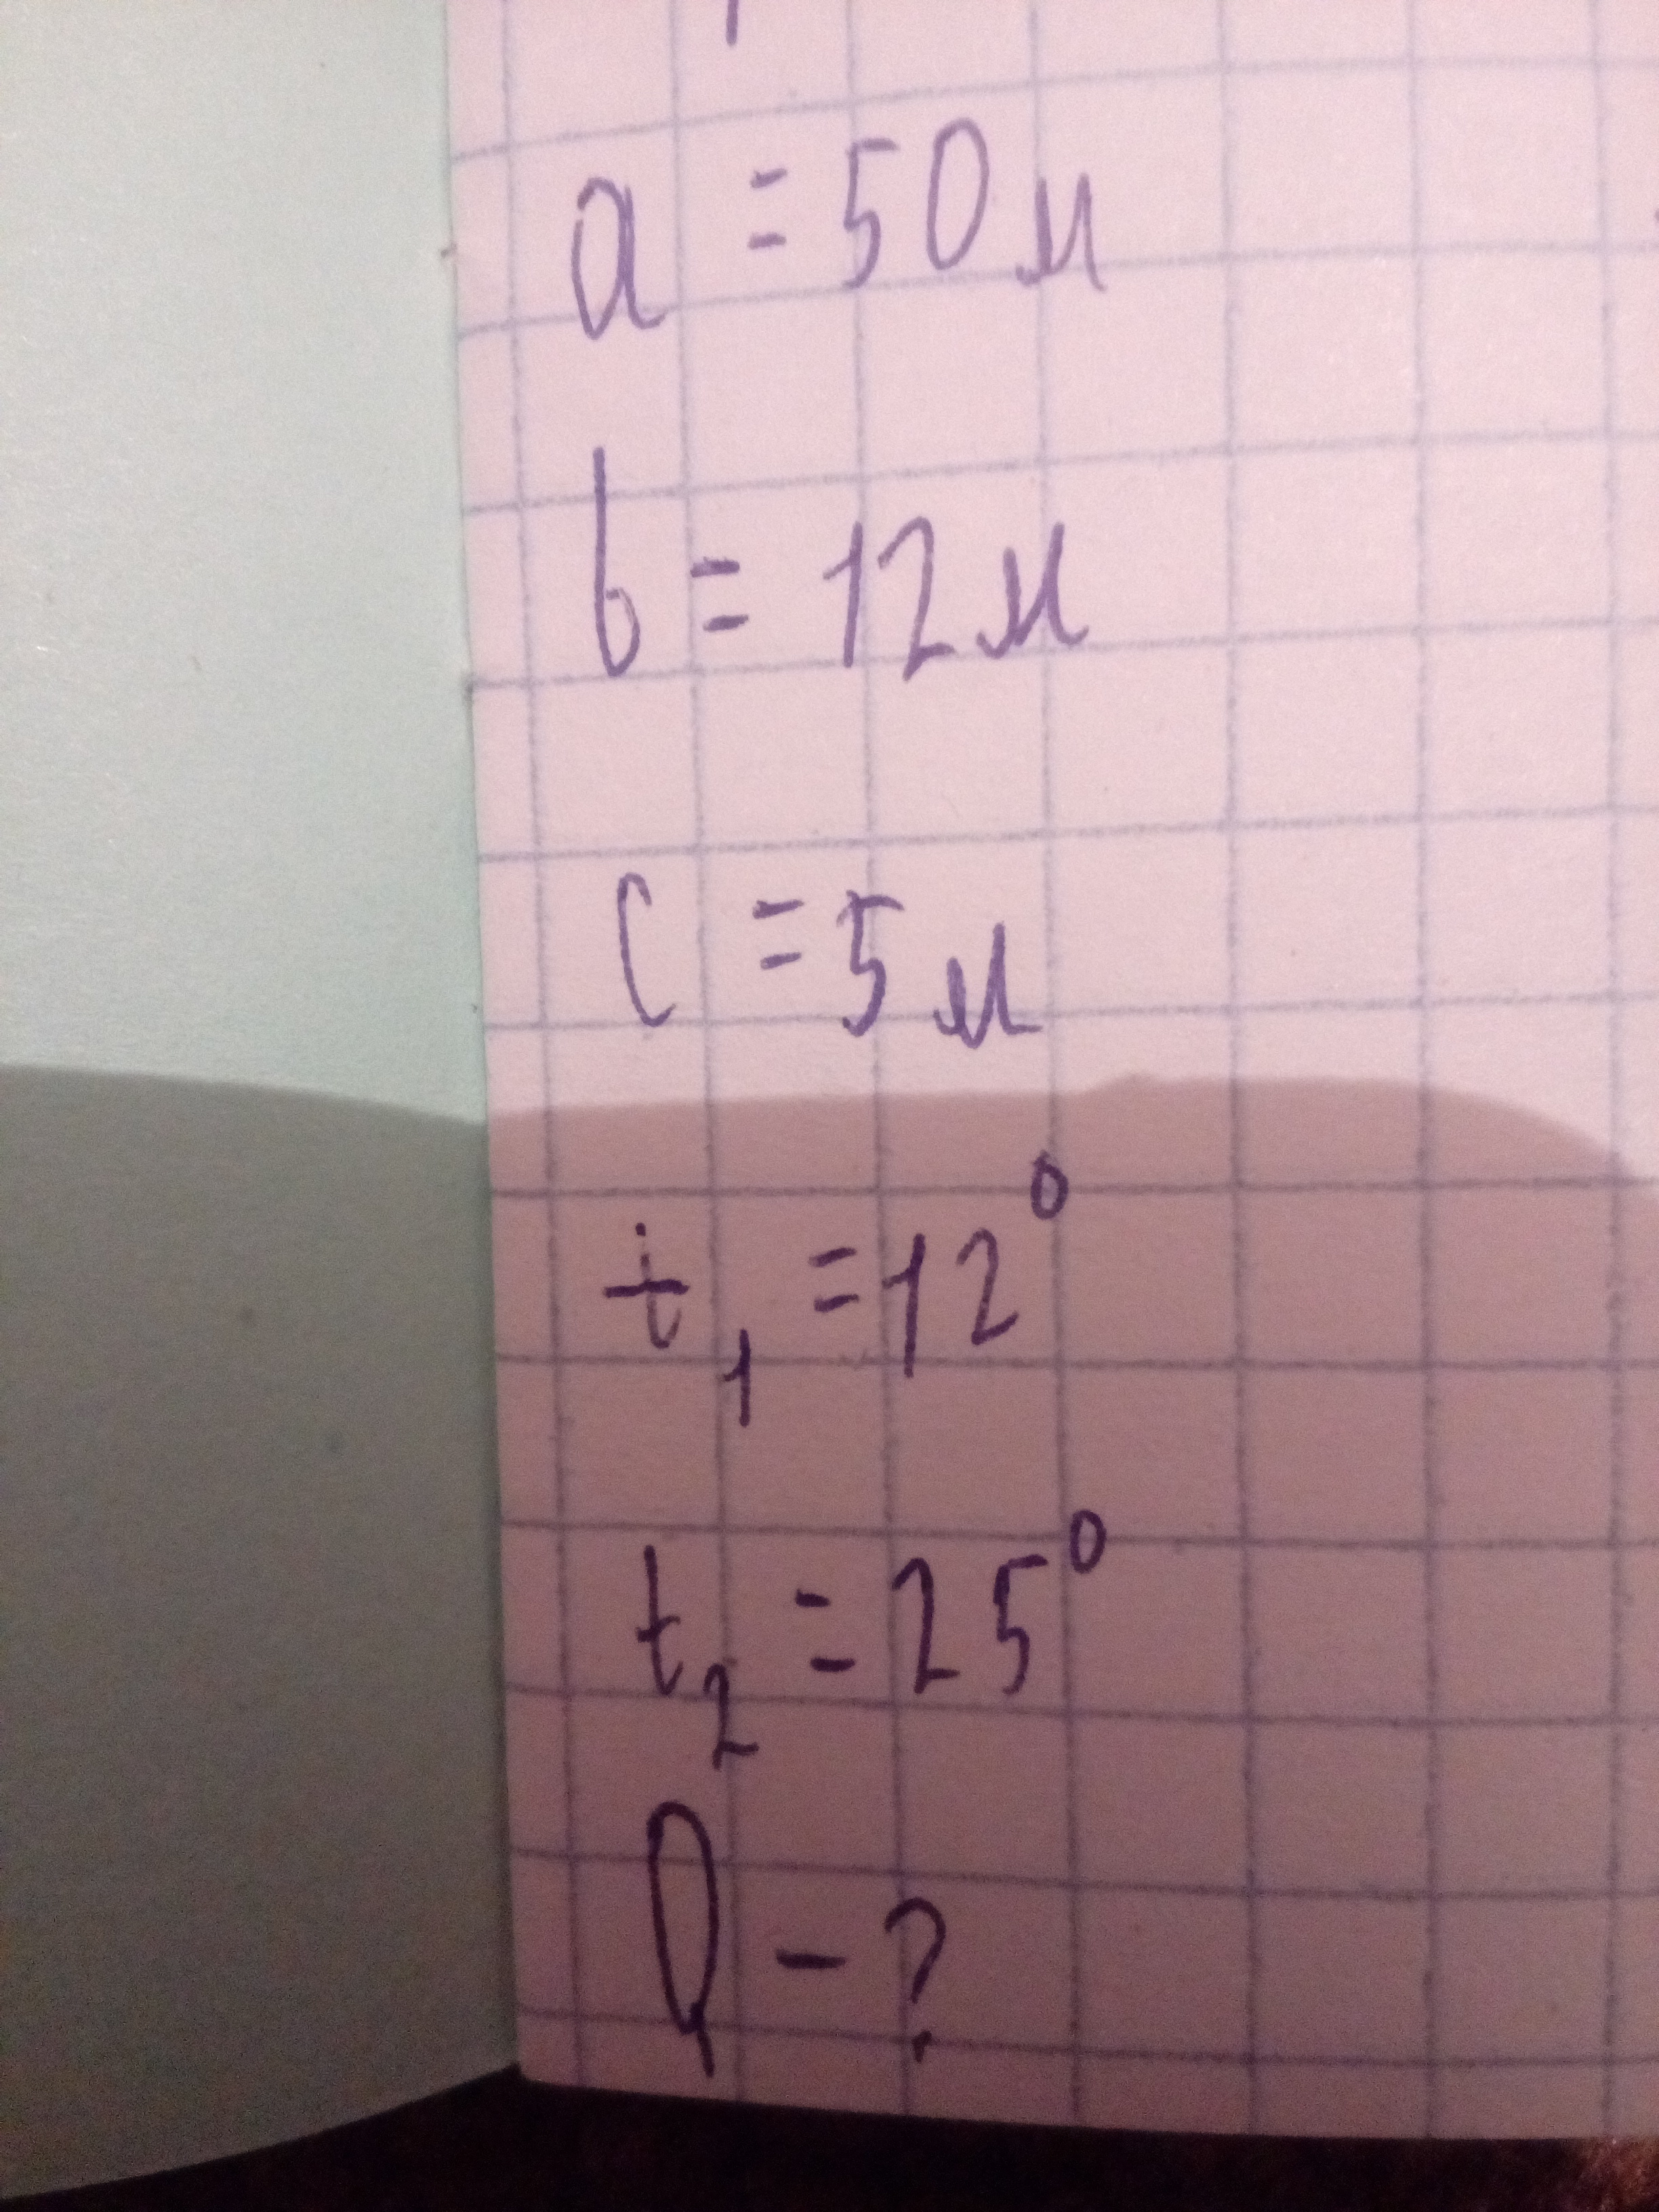 a = 50 м
b = 12 м
c = 5 м
t₁ = 12°
t₂ = 25°
Q - ?